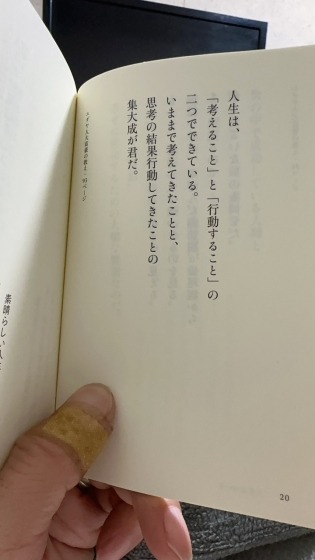 人生は、
「考えること」と「行動すること」の
二つでできている。
いままで考えてきたことと、
思考の結果行動してきたことの
集大成が君だ。
20
素晴らしい人